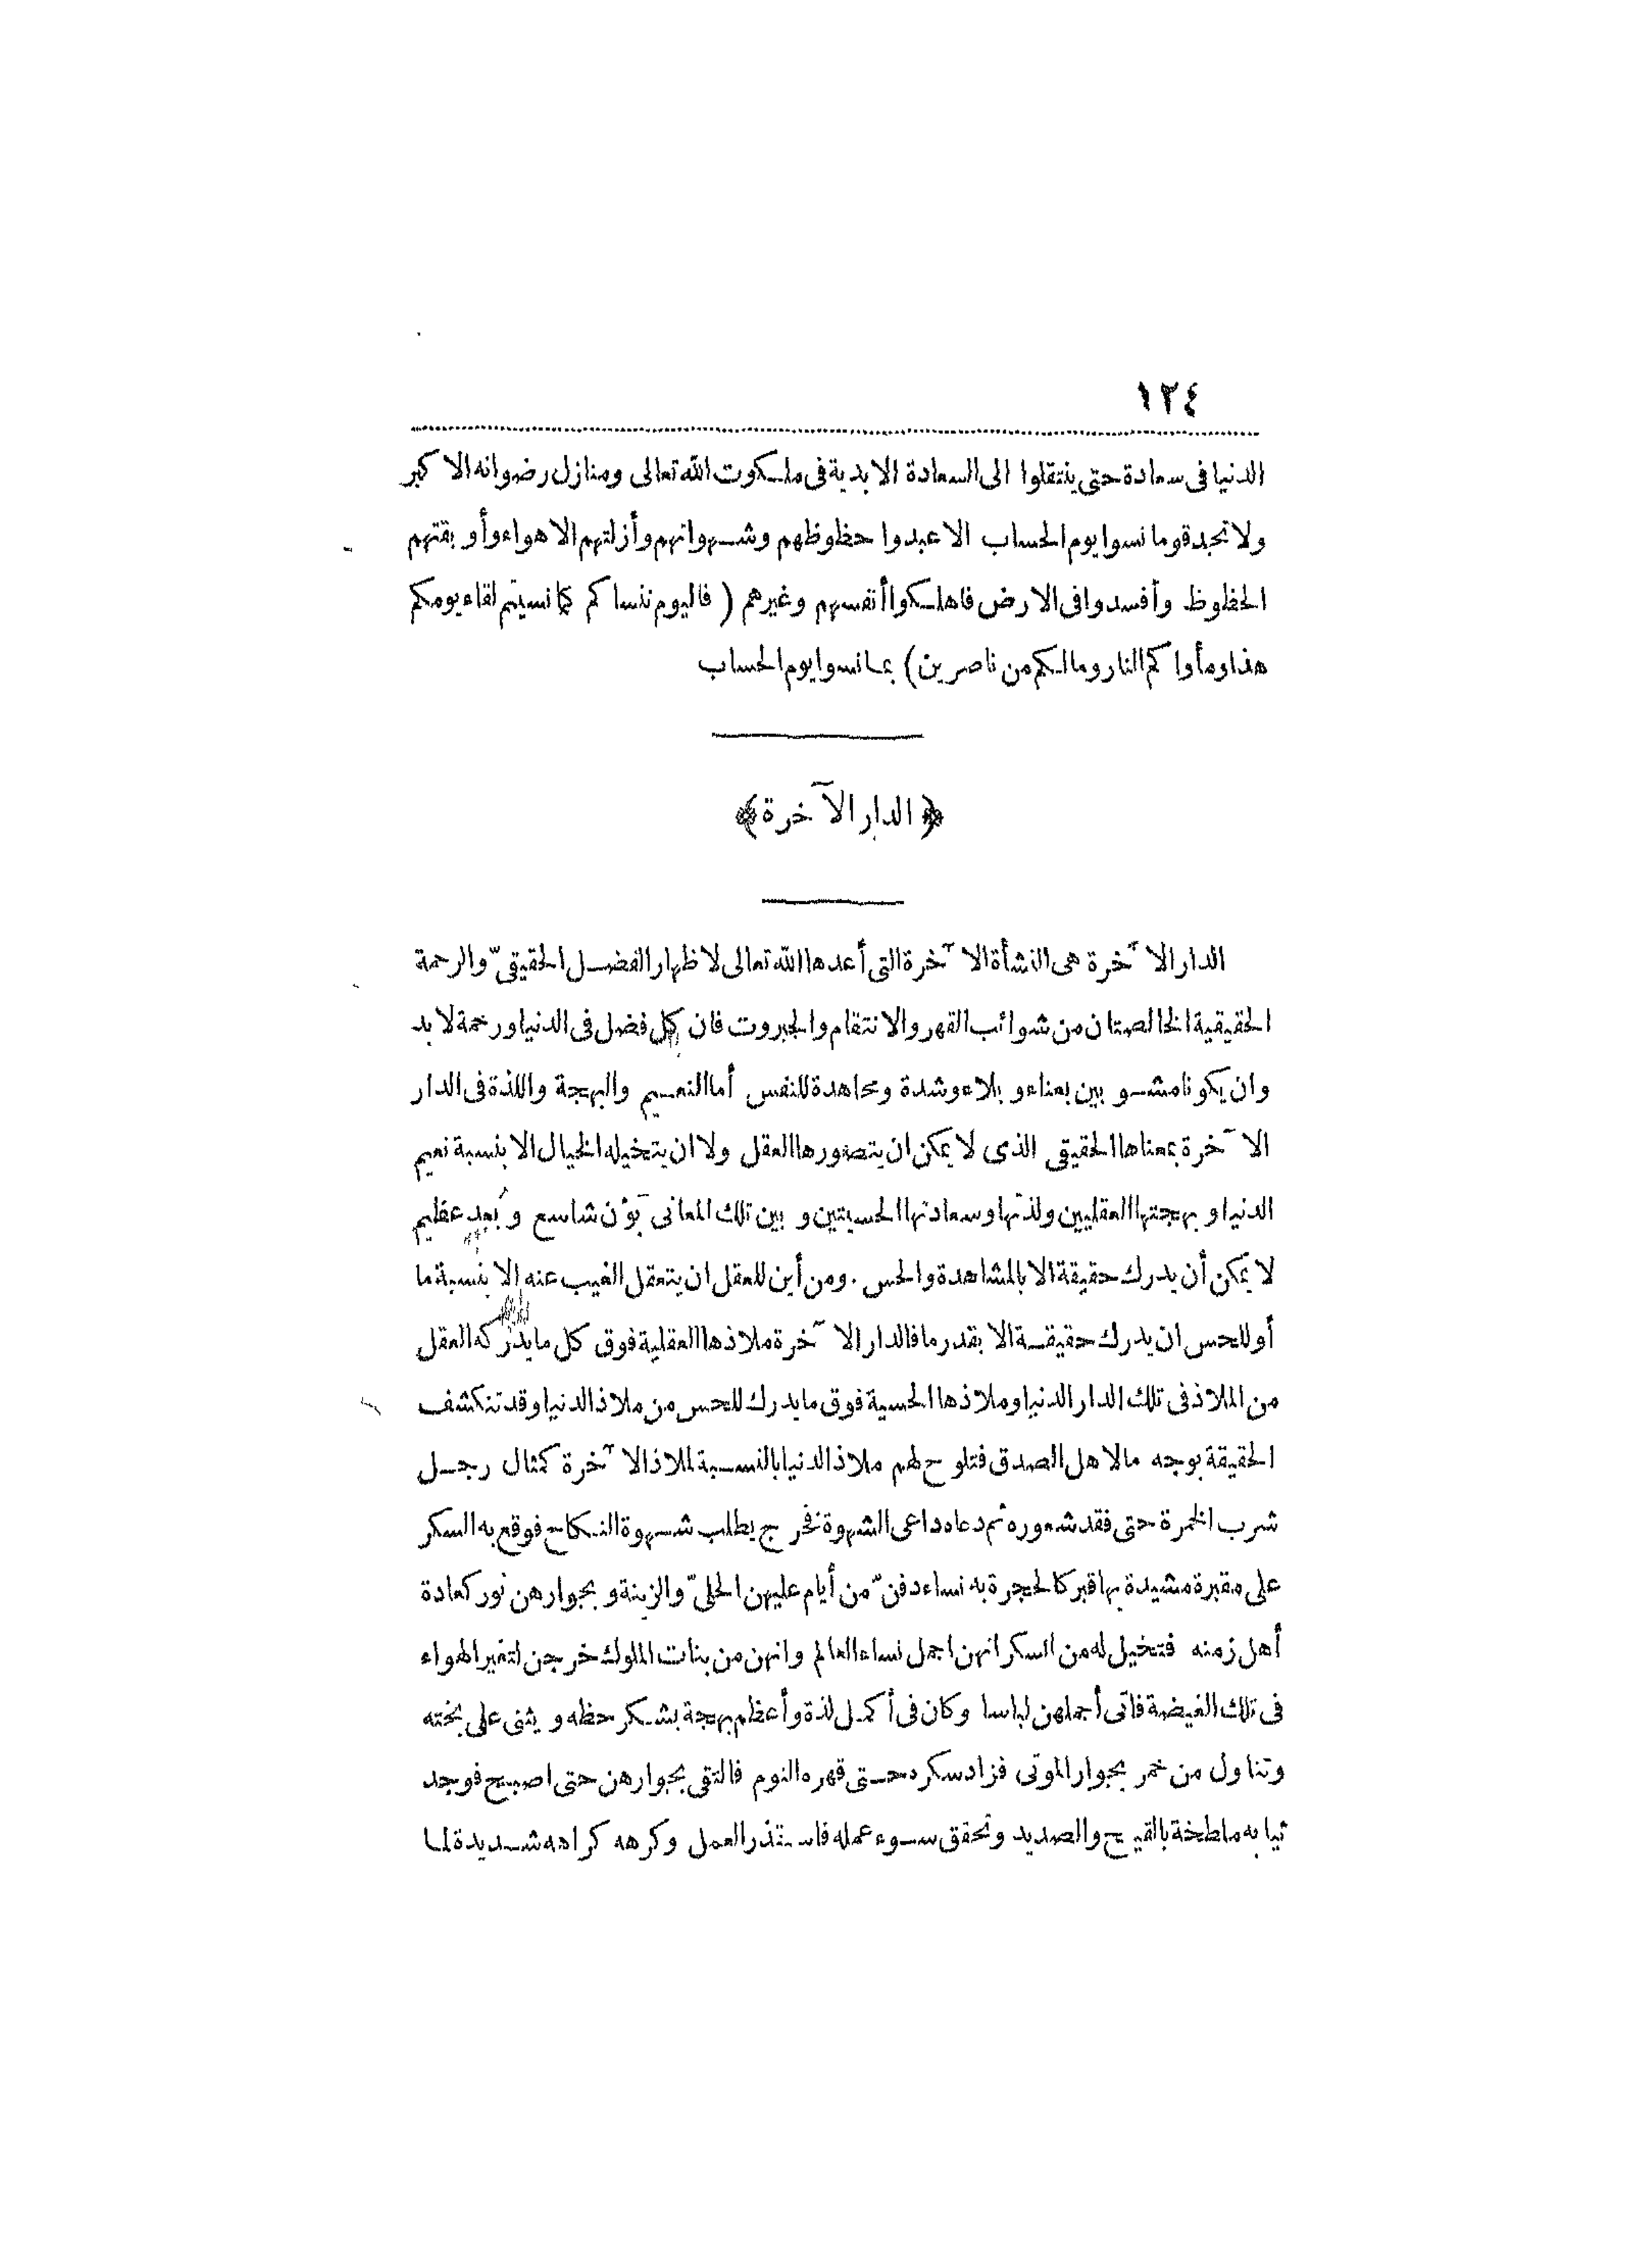 ١٢٤
الدنيا فى سعادة حتى ينتقلوا الى السعادة الابدية فى ملكوت الله تعالى ومنازل رضوانه الاكبر
ولا تجد قوما نسوا يوم الحساب الا عبدوا حظوظهم وشهواتهم وأزلتهم الاهواء وأوبقتهم
الحظوظ وأفسدوا فى الارض فاهلكوا أنفسهم وغيرهم ( فاليوم ننساكم كما نسيتم لقاء يومكم
هذا ومأواكم النار ومالكم من ناصرين) بما نسوا يوم الحساب
﴿ الدار الآخرة ﴾
الدار الآخرة هى النشأة الآخرة التى أعدها الله تعالى لاظهار الفضل الحقيقىّ والرحمة
الحقيقية الخالصتان من شوائب القهر والانتقام والجبروت فان كل فضل فى الدنيا ورحمة لا بد
وان يكونا مشوبين بعناء وبلاء وشدة ومجاهدة للنفس أما النعيم والبهجة واللذة فى الدار
الآخرة بمعناها الحقيقى الذى لا يمكن ان يتصورها العقل ولا ان يتخيله الخيال الا بنسبة نعيم
الدنيا وبهجتها العقليين ولذتها وسعادتها الحسيتين و بين تلك المعانى بَوْن شاسع وبُعد عظيم
لا يمكن أن يدرك حقيقة الا بالمشاهدة والحس . ومن أين للعقل ان يتعقل الغيب عنه الا بنسبة ما
أو للحس ان يدرك حقيقة الا بقدر ما فالدار الآخرة ملاذها العقلية فوق كل ما يدركه العقل
من الملاذ فى تلك الدار الدنيا وملاذها الحسية فوق ما يدرك للحس من ملاذ الدنيا وقد تنكشف
الحقيقة بوجه ما لاهل الصدق فتلوح لهم ملاذ الدنيا بالنسبة لملاذ الآخرة كمثال رجل
شرب الخمرة حتى فقد شعوره ثم دعاه داعى الشهوة فخرج يطلب شهوة النكاح فوقع به السكر
على مقبرة مشيدة بها قبر كالحجرة به نساء دفنّ من أيام عليهن الحلىّ والزينة وبجوارهن نور كعادة
أهل زمنه فتخيل له من السكر انهن اجمل نساء العالم وانهن من بنات الملوك خرجن لتغير الهواء
فى تلك الغيضة فاتى أجملهن لباسا وكان فى أكمل لذة وأعظم بهجة بشكر حظه ويثنى على بخته
وتناول من خمر بجوار الموتى فزاد سكره حتى قهره النوم فالتقى بجوارهن حتى اصبح فوجد
ثيابه ملطخة بالقيح والصديد وتحقق سوء عمله فاستقذر العمل وكرهه كراهه شديدة لما